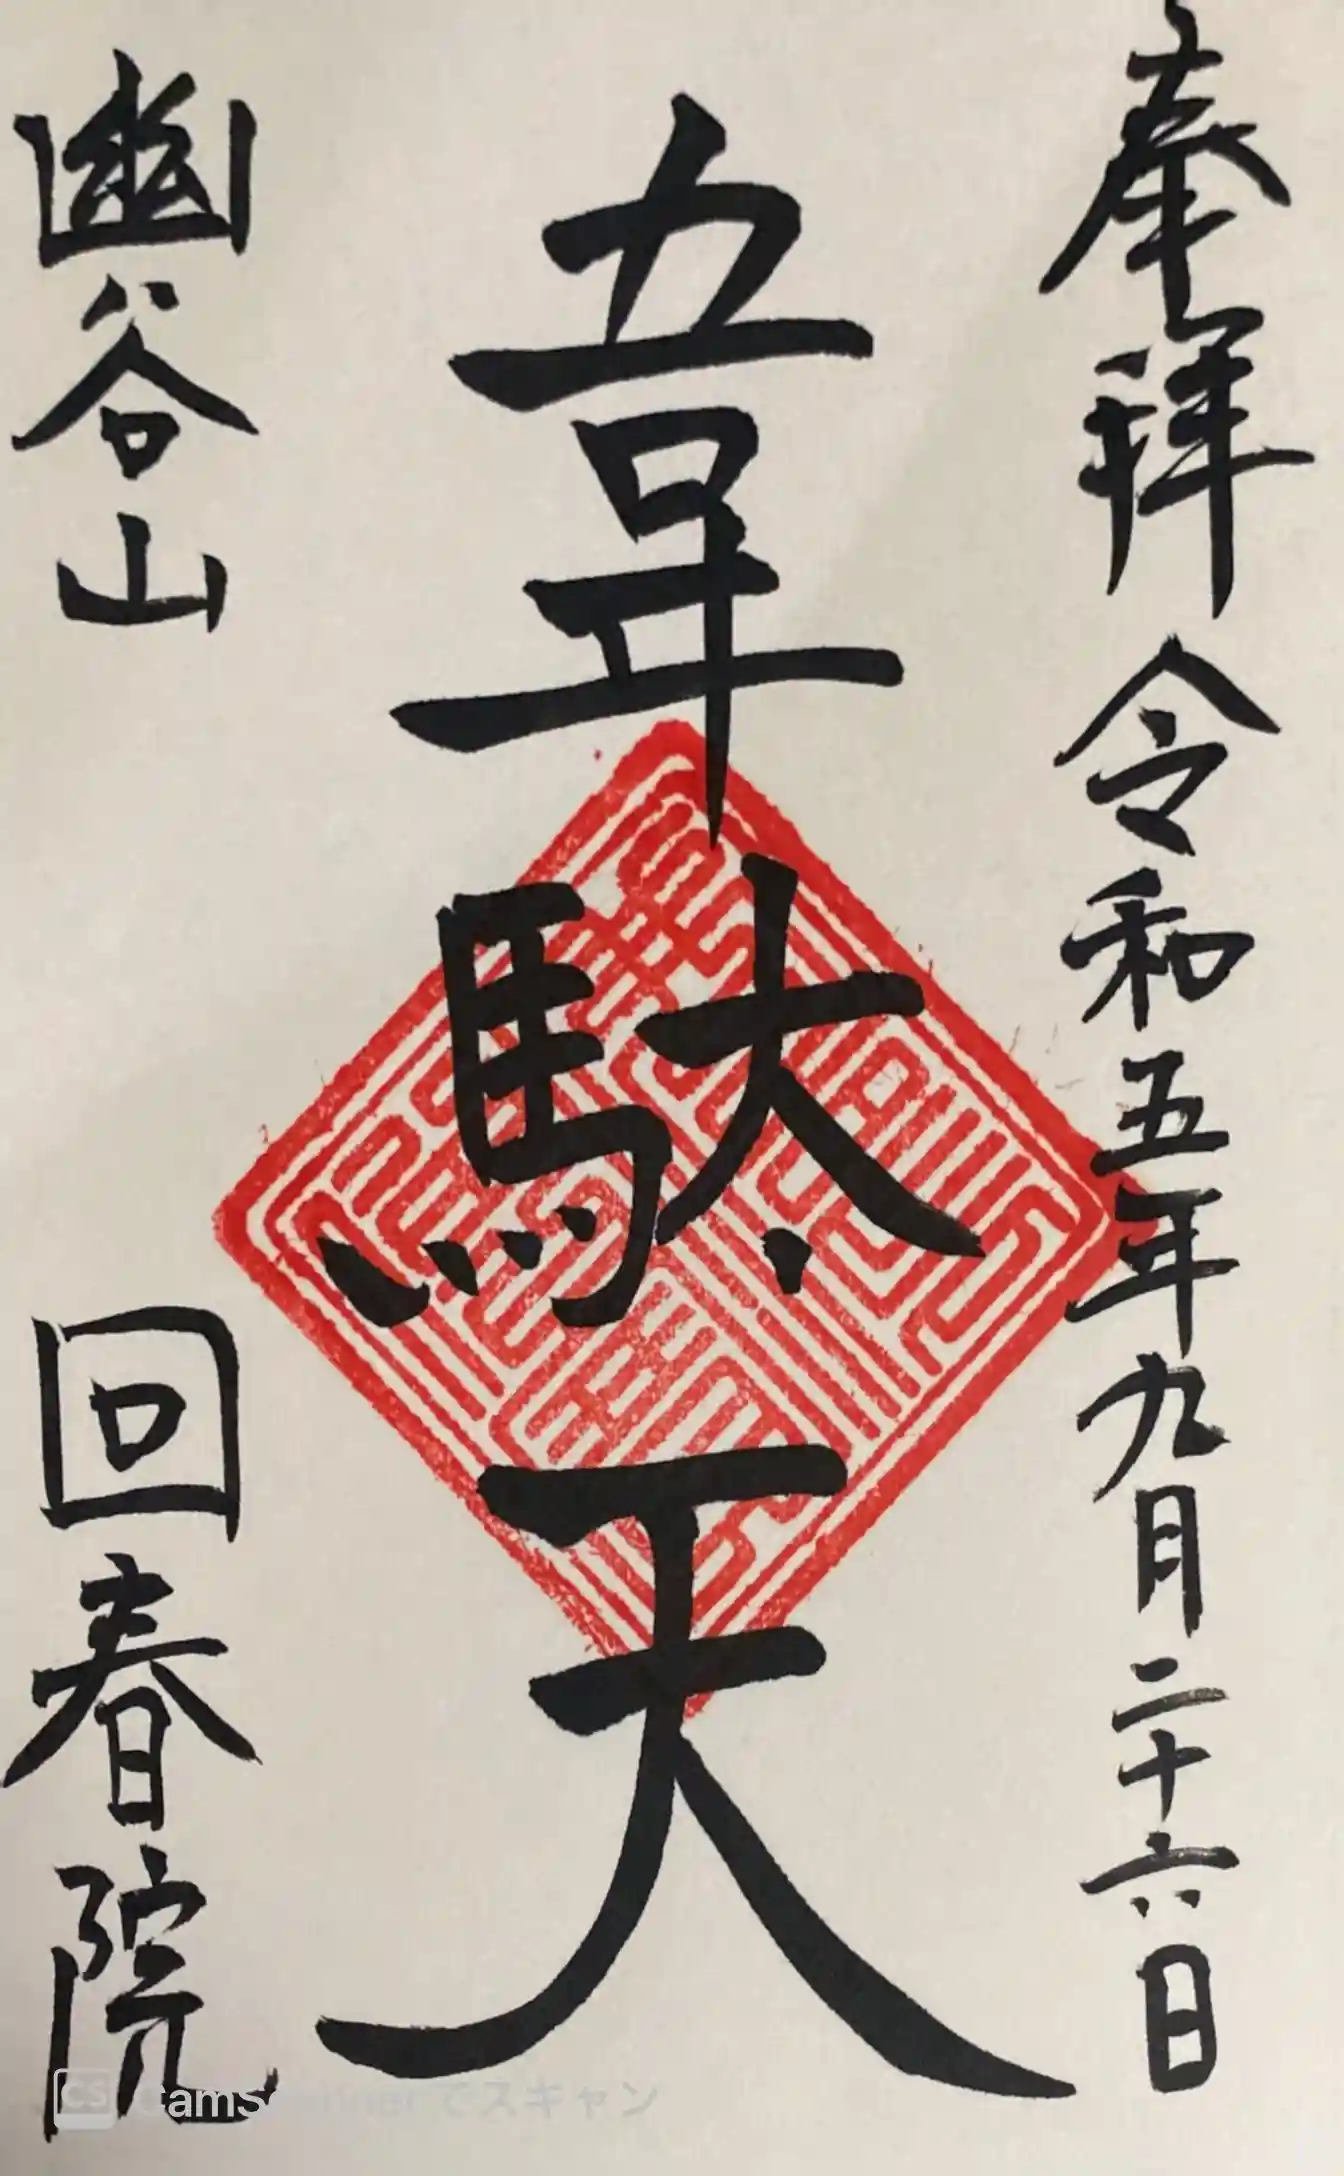 奉拝 令和五年九月二十六日
韋駄天
幽谷山 回春院
CamScannerでスキャン